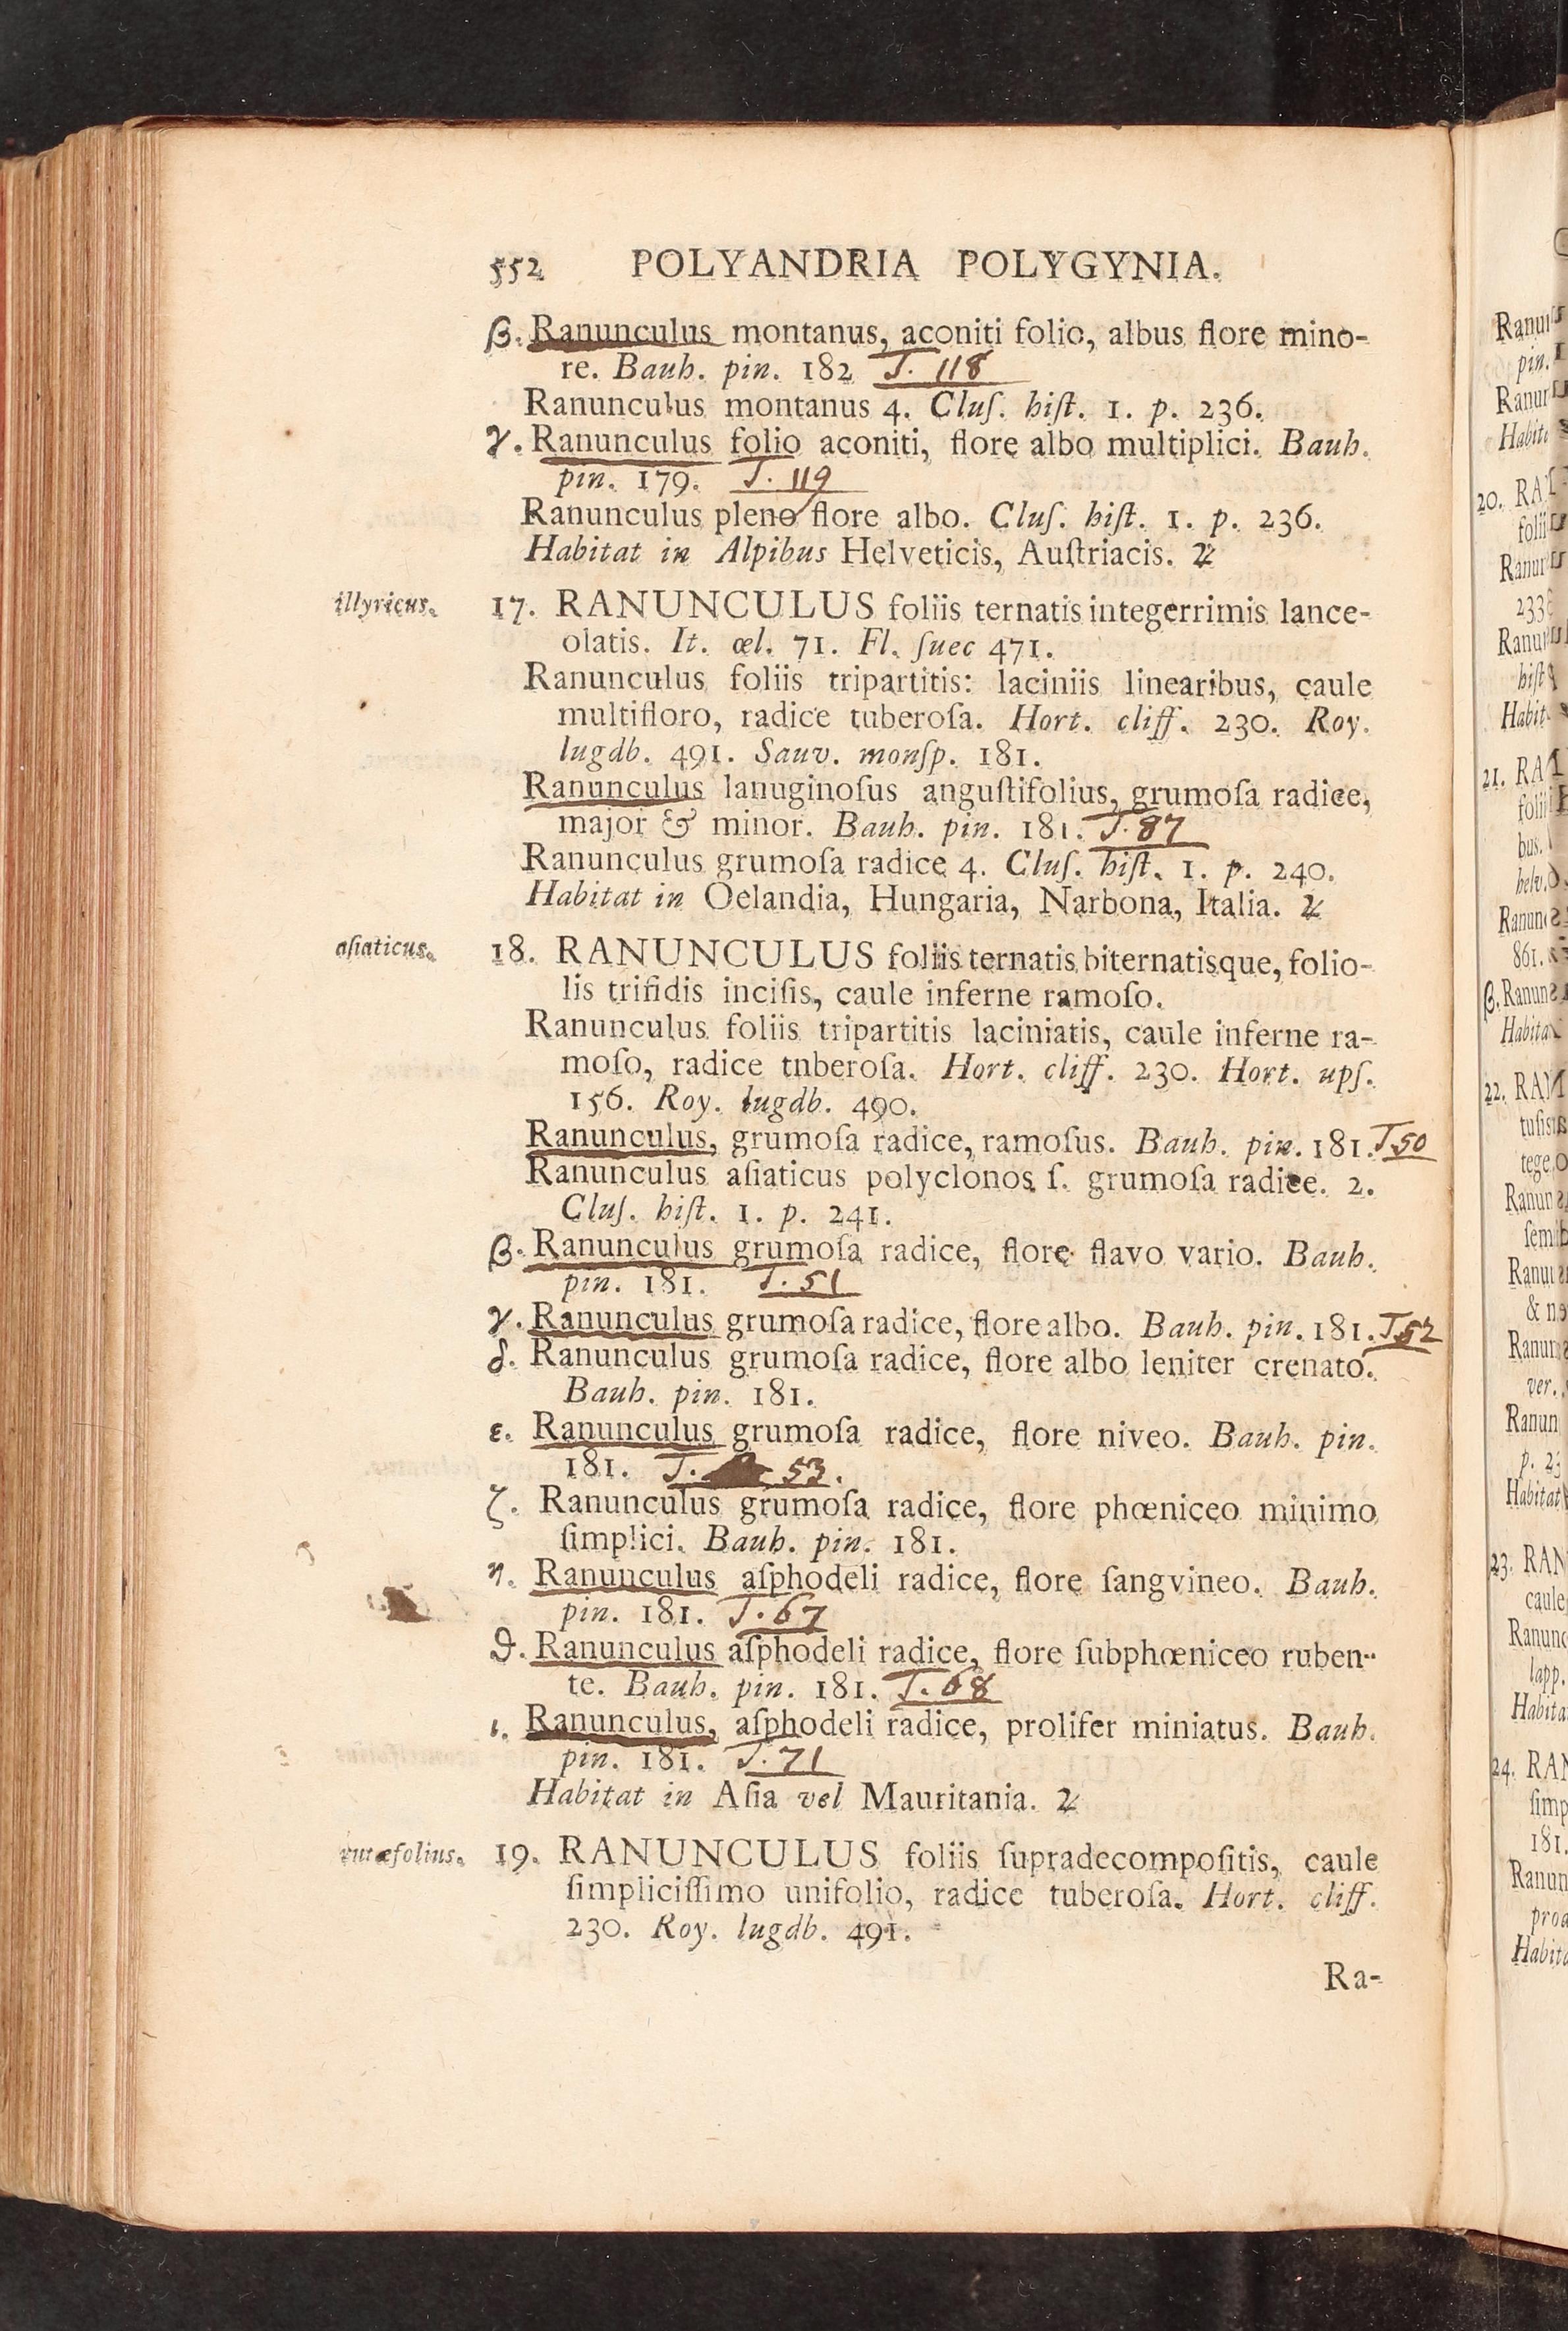 552 POLYANDRIA POLYGYNIA.
β. Ranunculus montanus, aconiti folio, albus flore mino-
re. Bauh. pin. 182 T. 118
Ranunculus montanus 4. Cluſ. hiſt. 1. p. 236.
γ. Ranunculus folio aconiti, flore albo multiplici. Bauh.
pin. 179. T. 119
Ranunculus pleno flore albo. Cluſ. hiſt. 1. p. 236.
Habitat in Alpibus Helveticis, Auſtriacis. ♃
illyricus. 17. RANUNCULUS foliis ternatis integerrimis lance-
olatis. It. œl. 71. Fl. ſuec 471.
Ranunculus foliis tripartitis: laciniis linearibus, caule
multifloro, radice tuberoſa. Hort. cliff. 230. Roy.
lugdb. 491. Sauv. monſp. 181.
Ranunculus lanuginoſus anguſtifolius, grumoſa radice,
major & minor. Bauh. pin. 181. T. 87
Ranunculus grumoſa radice 4. Cluſ. hiſt. 1. p. 240.
Habitat in Oelandia, Hungaria, Narbona, Italia. ♃
aſiaticus. 18. RANUNCULUS foliis ternatis biternatisque, folio-
lis trifidis inciſis, caule inferne ramoſo.
Ranunculus foliis tripartitis laciniatis, caule inferne ra-
moſo, radice tnberoſa. Hort. cliff. 230. Hort. upſ.
156. Roy. lugdb. 490.
Ranunculus, grumoſa radice, ramoſus. Bauh. pin. 181. T. 50
Ranunculus aſiaticus polyclonos ſ. grumoſa radice. 2.
Cluſ. hiſt. 1. p. 241.
β. Ranunculus grumoſa radice, flore flavo vario. Bauh.
pin. 181. T. 51
γ. Ranunculus grumoſa radice, flore albo. Bauh. pin. 181. T. 52
δ. Ranunculus grumoſa radice, flore albo leniter crenato.
Bauh. pin. 181.
ε. Ranunculus grumoſa radice, flore niveo. Bauh. pin.
181. T. 53.
ζ. Ranunculus grumoſa radice, flore phœniceo minimo
ſimplici. Bauh. pin. 181.
η. Ranunculus aſphodeli radice, flore ſangvineo. Bauh.
pin. 181. T. 67
ϑ. Ranunculus aſphodeli radice, flore ſubphœniceo ruben-
te. Bauh. pin. 181. T. 68
ι. Ranunculus, aſphodeli radice, prolifer miniatus. Bauh.
pin. 181. T. 71
Habitat in Aſia vel Mauritania. ♃
rutæfolius. 19. RANUNCULUS foliis ſupradecompoſitis, caule
ſimpliciſſimo unifolio, radice tuberoſa. Hort. cliff.
230. Roy. lugdb. 491.
Ra-